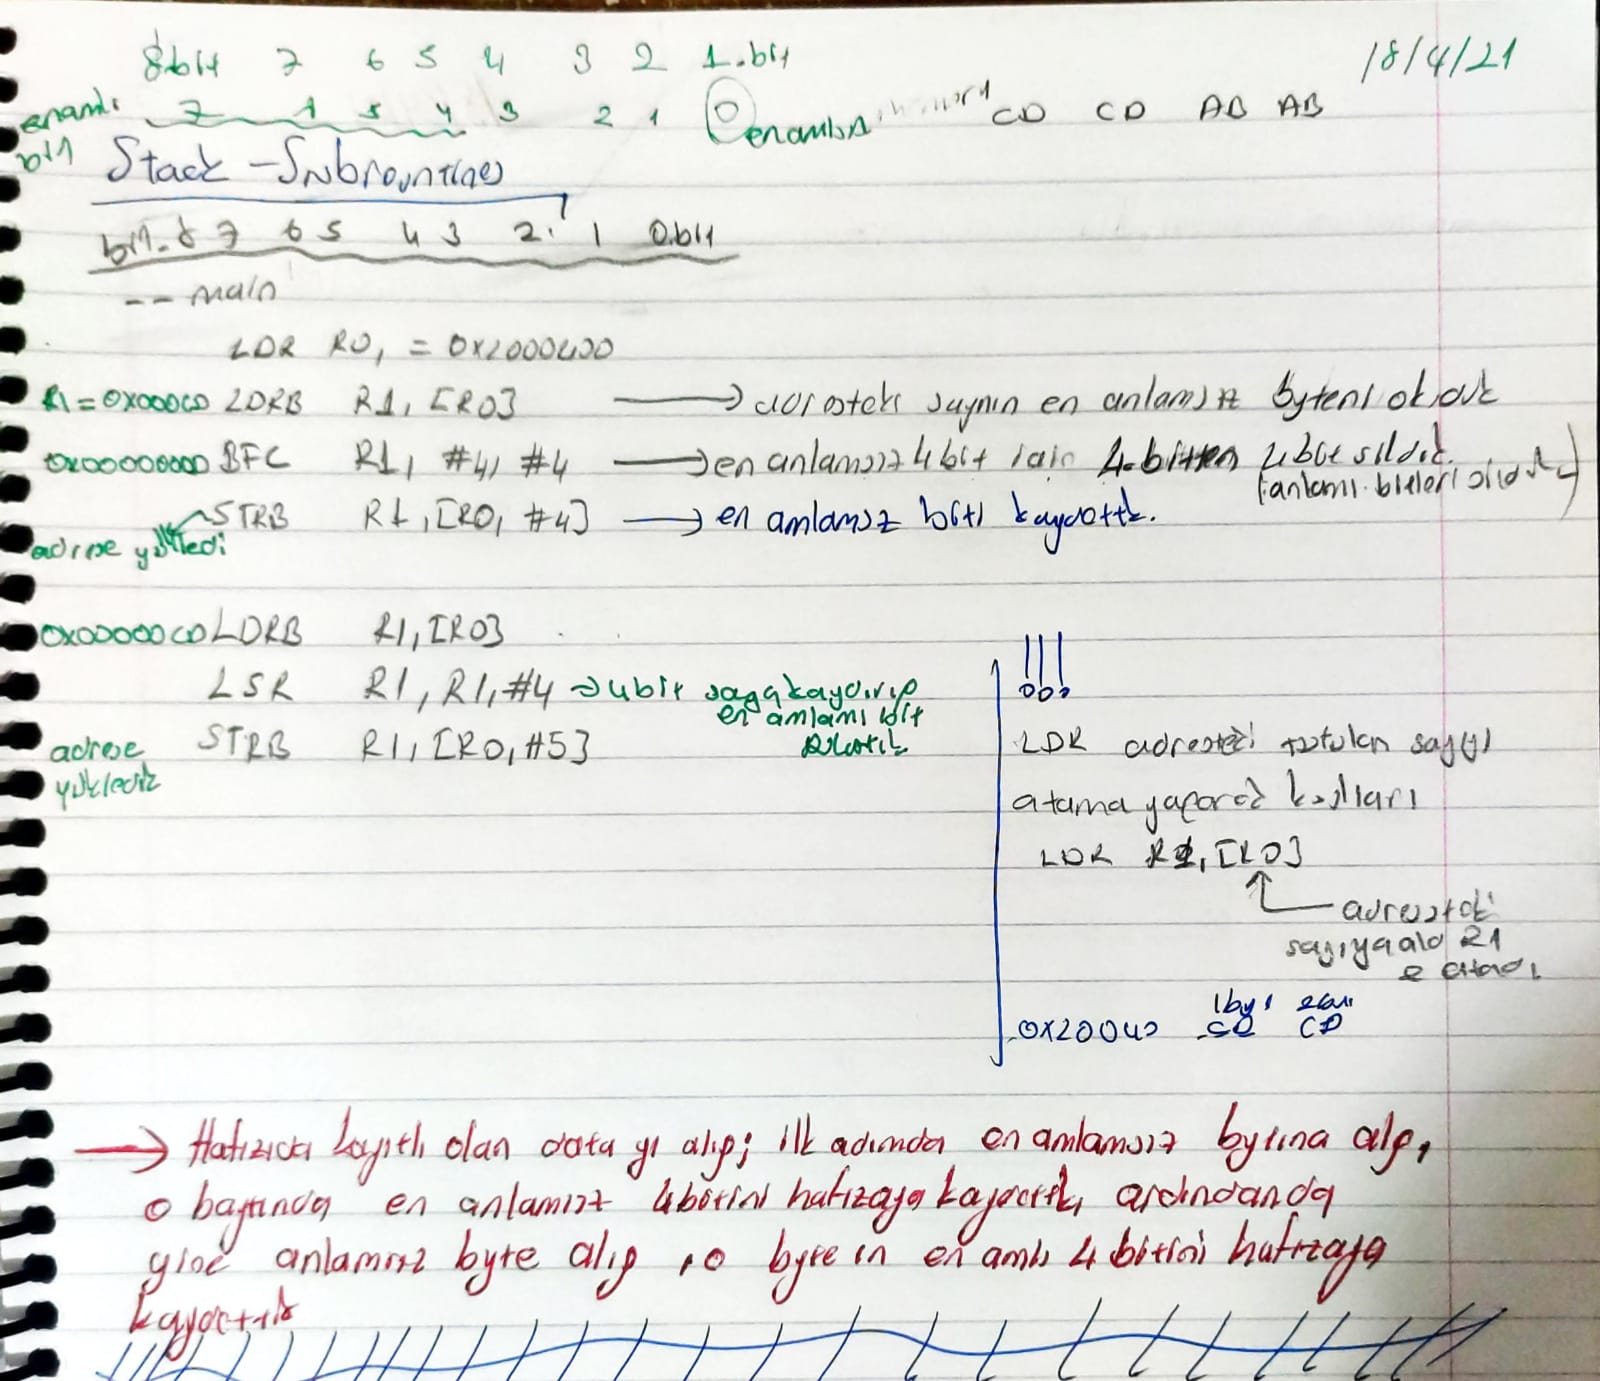 8.bit 7 6 5 4 3 2 1.bit
18/4/21
enamlı 7 1 5 4 3 2 1 0 enamlsız CD CD AB AB
bit
Stack - Subrountines
bit. 8 7 6 5 4 3 2. 1 0.bit
-- main
LDR R0, = 0x2000400
R1 = 0x000CD LDRB R1, [R0] → adresteki sayının en anlamsız byteni okduk
0x00000000 BFC R1, #4, #4 → en anlamsız 4 bit için 4.bitten 4 bit sildik.
(anlamı bitleri sildik)
STRB R1, [R0, #4] → en anlamsız biti kaydettk.
adrese yükledi
0x000000CD LDRB R1, [R0]
LSR R1, R1, #4 → 4 bit sağa kaydırıp
en anlamı bit
STRB R1, [R0, #5]
adrese
yükledik
!!!
LDR adresteki tutulan sayıyı
atama yaparak kullanı
LDR R1, [R0]
adresteki
sayıya aldı R1
e atadı
1by
0x20040 CD CD
→ Hafızda kayıtlı olan data yı alıp; ilk adımda en anlamsız bytına alıp,
o baytında en anlamsız 4 bitini hafızaya kaydettk, ardındanda
yine anlamsız byte alıp, o byte ın en amlı 4 bitini hafızaya
kaydettik